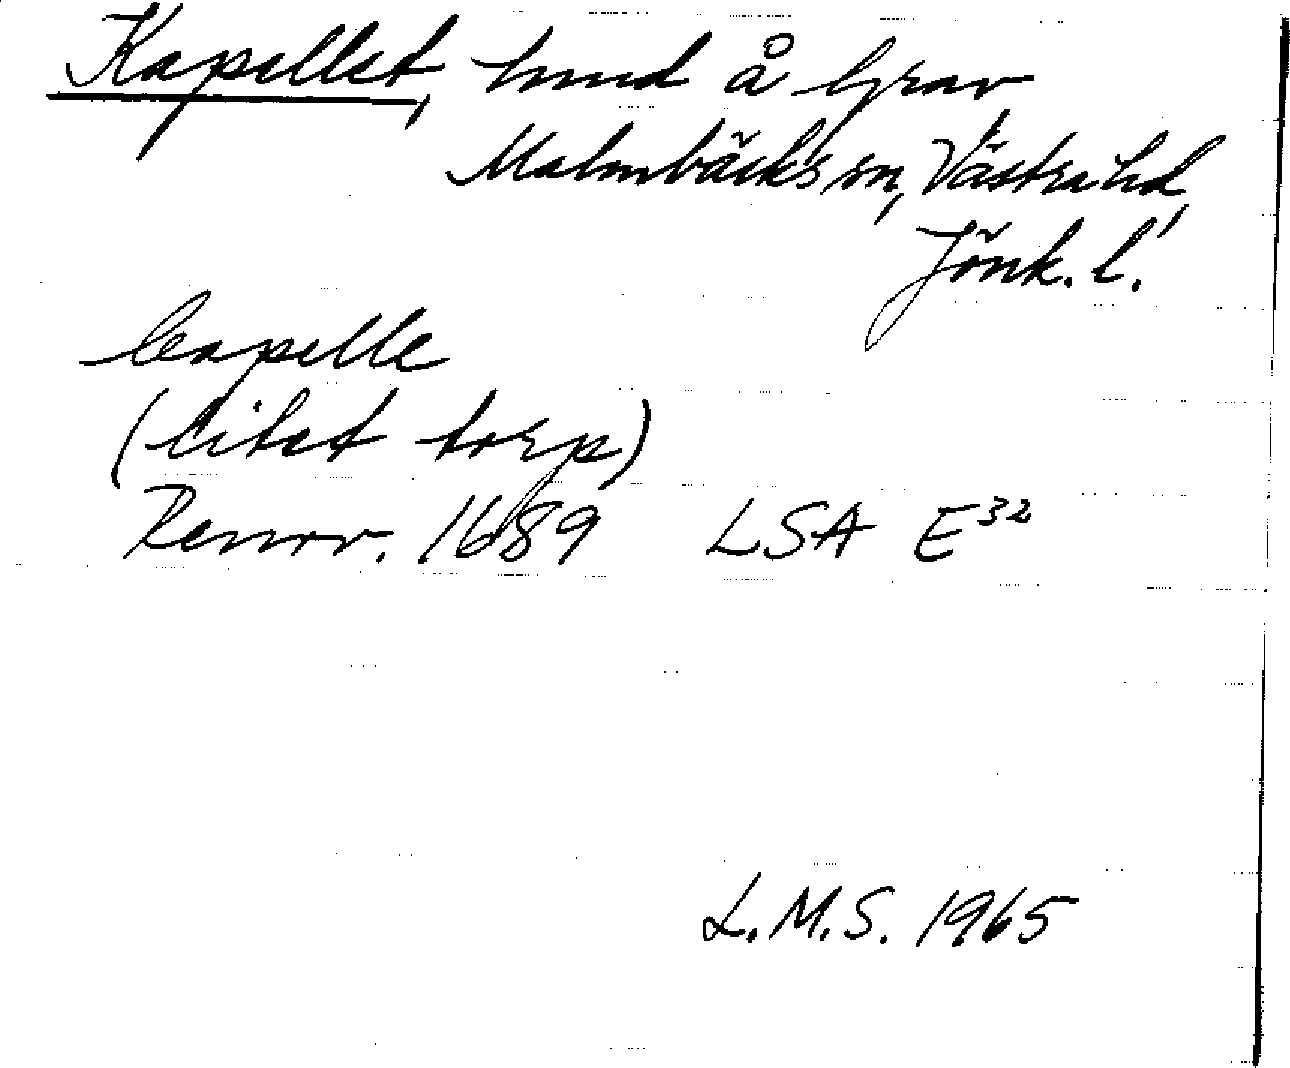 Kapellet, hmd å Grav,
Malmbäcks sn, Västra hd,
Jönk. l.
Capelle
(litet torp)
Renov. 1689 LSA E³²
L.M.S. 1965